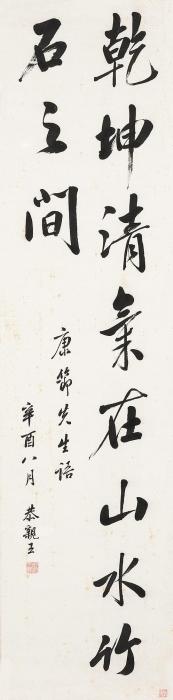 乾坤清氣在山水竹
石之間
康節先生語
辛酉八月 恭親王